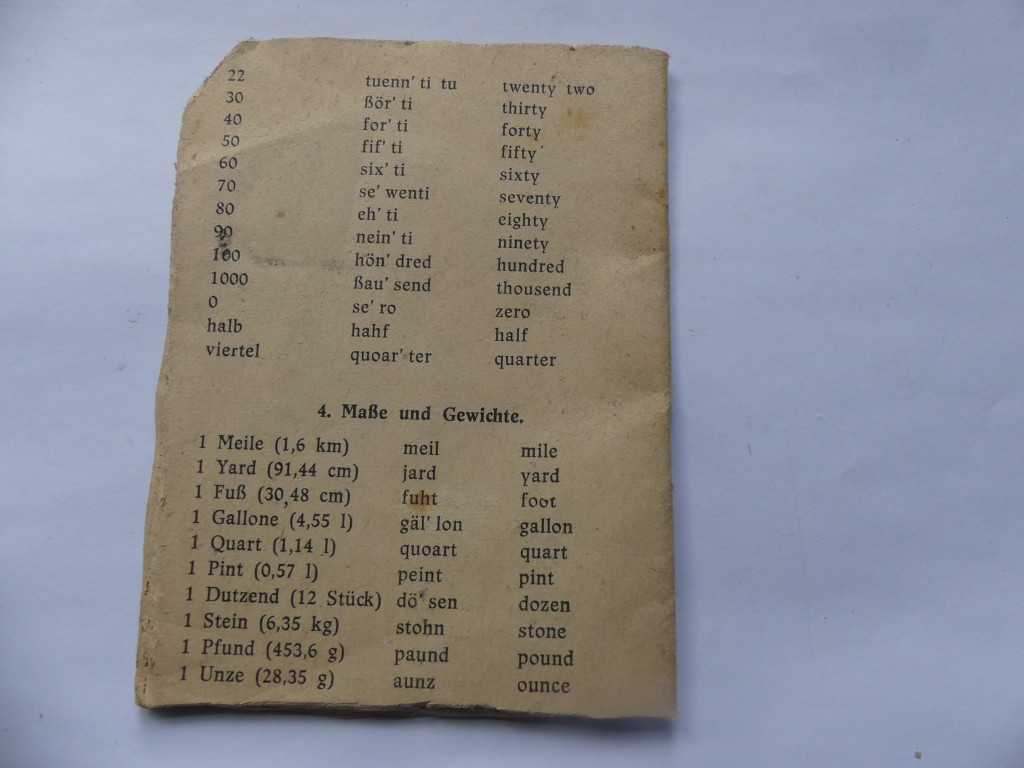 22 tuenn' ti tu twenty two
30 ßör' ti thirty
40 for' ti forty
50 fif' ti fifty
60 six' ti sixty
70 se' wenti seventy
80 eh' ti eighty
90 nein' ti ninety
100 hön' dred hundred
1000 ßau' send thousend
0 se' ro zero
halb hahf half
viertel quoar' ter quarter
4. Maße und Gewichte.
1 Meile (1,6 km) meil mile
1 Yard (91,44 cm) jard yard
1 Fuß (30,48 cm) fuht foot
1 Gallone (4,55 l) gäl' lon gallon
1 Quart (1,14 l) quoart quart
1 Pint (0,57 l) peint pint
1 Dutzend (12 Stück) dö' sen dozen
1 Stein (6,35 kg) stohn stone
1 Pfund (453,6 g) paund pound
1 Unze (28,35 g) aunz ounce